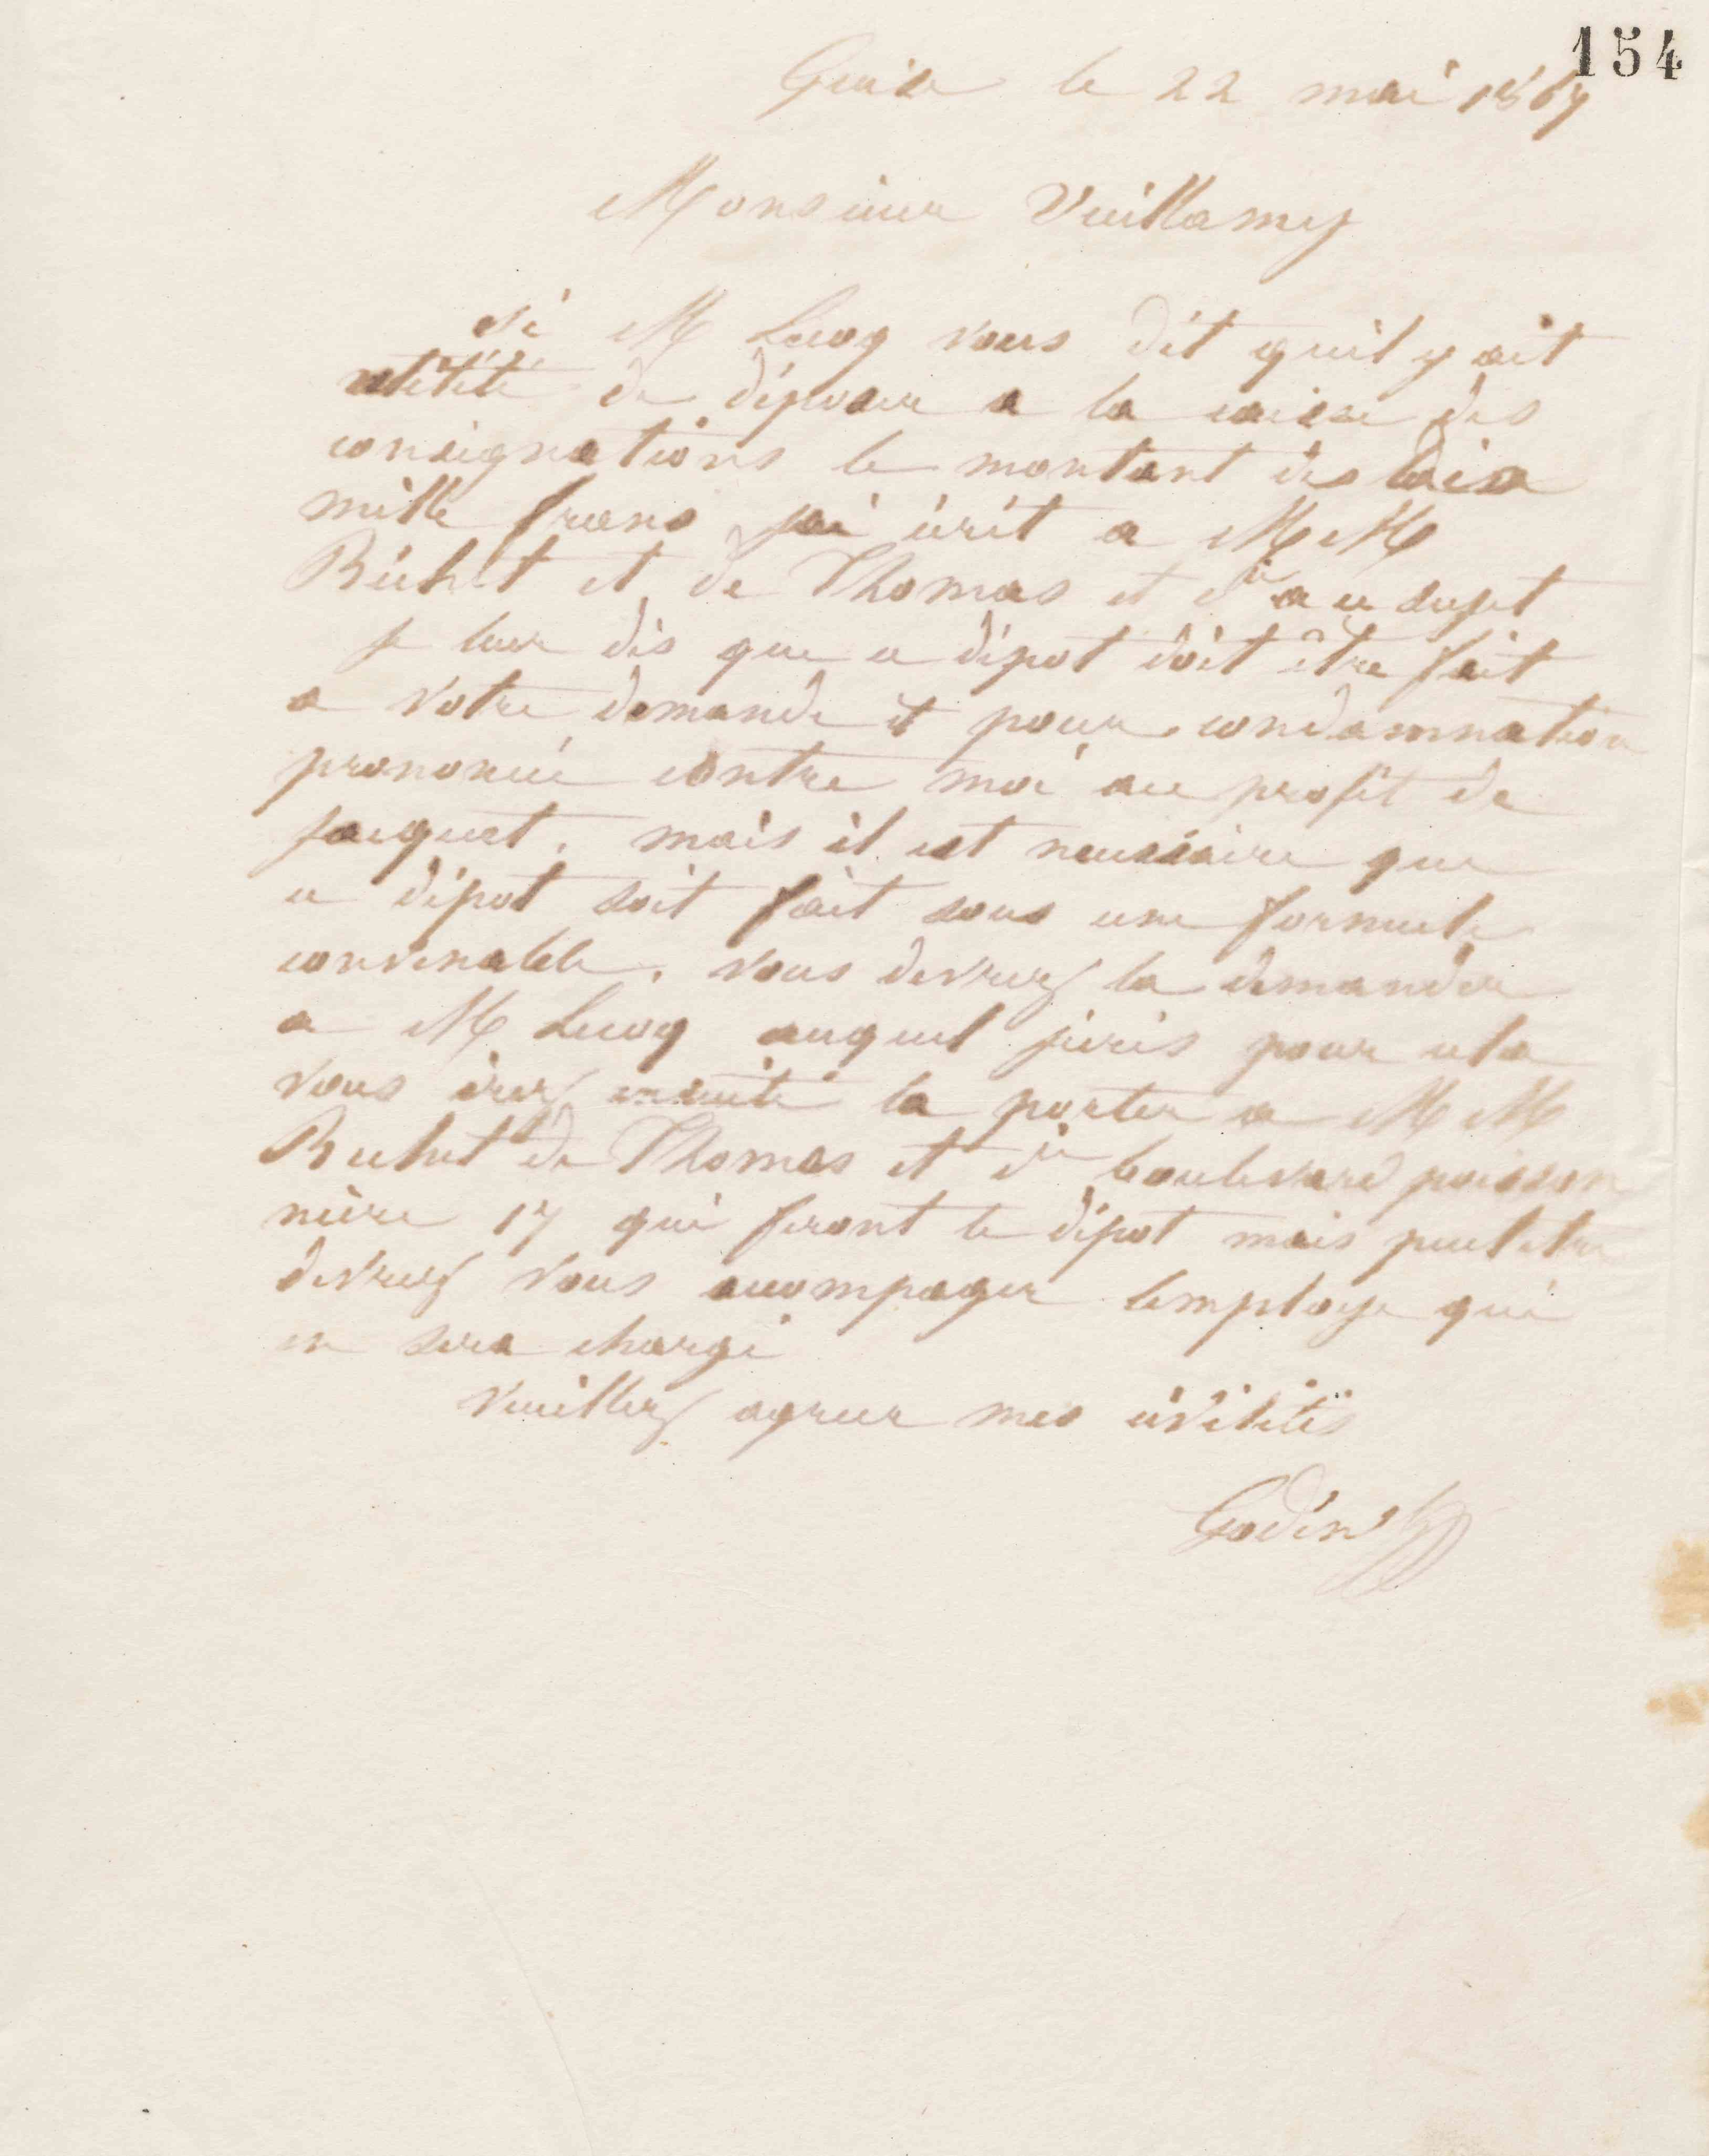 154
Guise le 22 mai 1867
Monsieur Vuillamy
si M Lecoq vous dit quil y ait
utilité de déposer a la caisse des
consignations le montant des
mille francs jai écrit a MM
Béchet et de Thomas et Cie a ce sujet
je leur dis que ce dépot doit être fait
a votre demande et pour condamnation
prononcée contre moi au profit de
jacquet. mais il est necessaire que
ce dépot soit fait sous une formule
convenable. vous devrez la demander
a M Lecoq auquel jécris pour cela
vous irez ensuite la porter a MM
Bechet de Thomas et Cie boulevard poisson
nière 17 qui feront le dépot mais peut etre
devrez vous accompager lemploye qui
en sera chargé
Veuillez agreer mes civilités
Godin